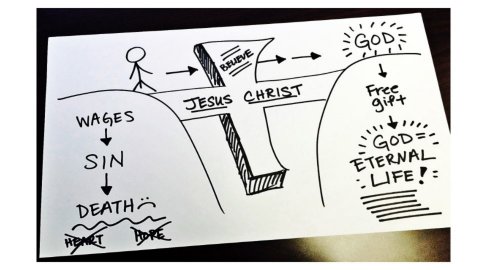 BELIEVE
GOD
JESUS CHRIST
WAGES
SIN
DEATH
HEART HOPE
Free
gift
GOD =
ETERNAL
LIFE!